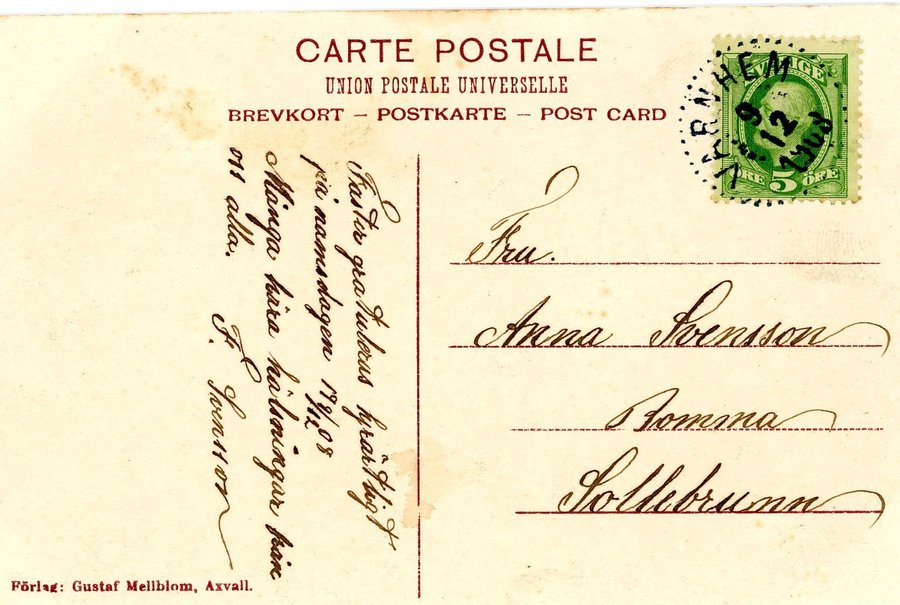 CARTE POSTALE
UNION POSTALE UNIVERSELLE
BREVKORT – POSTKARTE – POST CARD
SVERIGE
ÖRE 5 ÖRE
VARNHEM
9 12 1908
Faster gratuleras hjärtligt
på namsdagen 19 9/12 08
Många kära hälsningar från
oss alla. F. Svensson
Fru.
Anna Svensson
Bomma
Sollebrunn
Förlag: Gustaf Mellblom, Axvall.